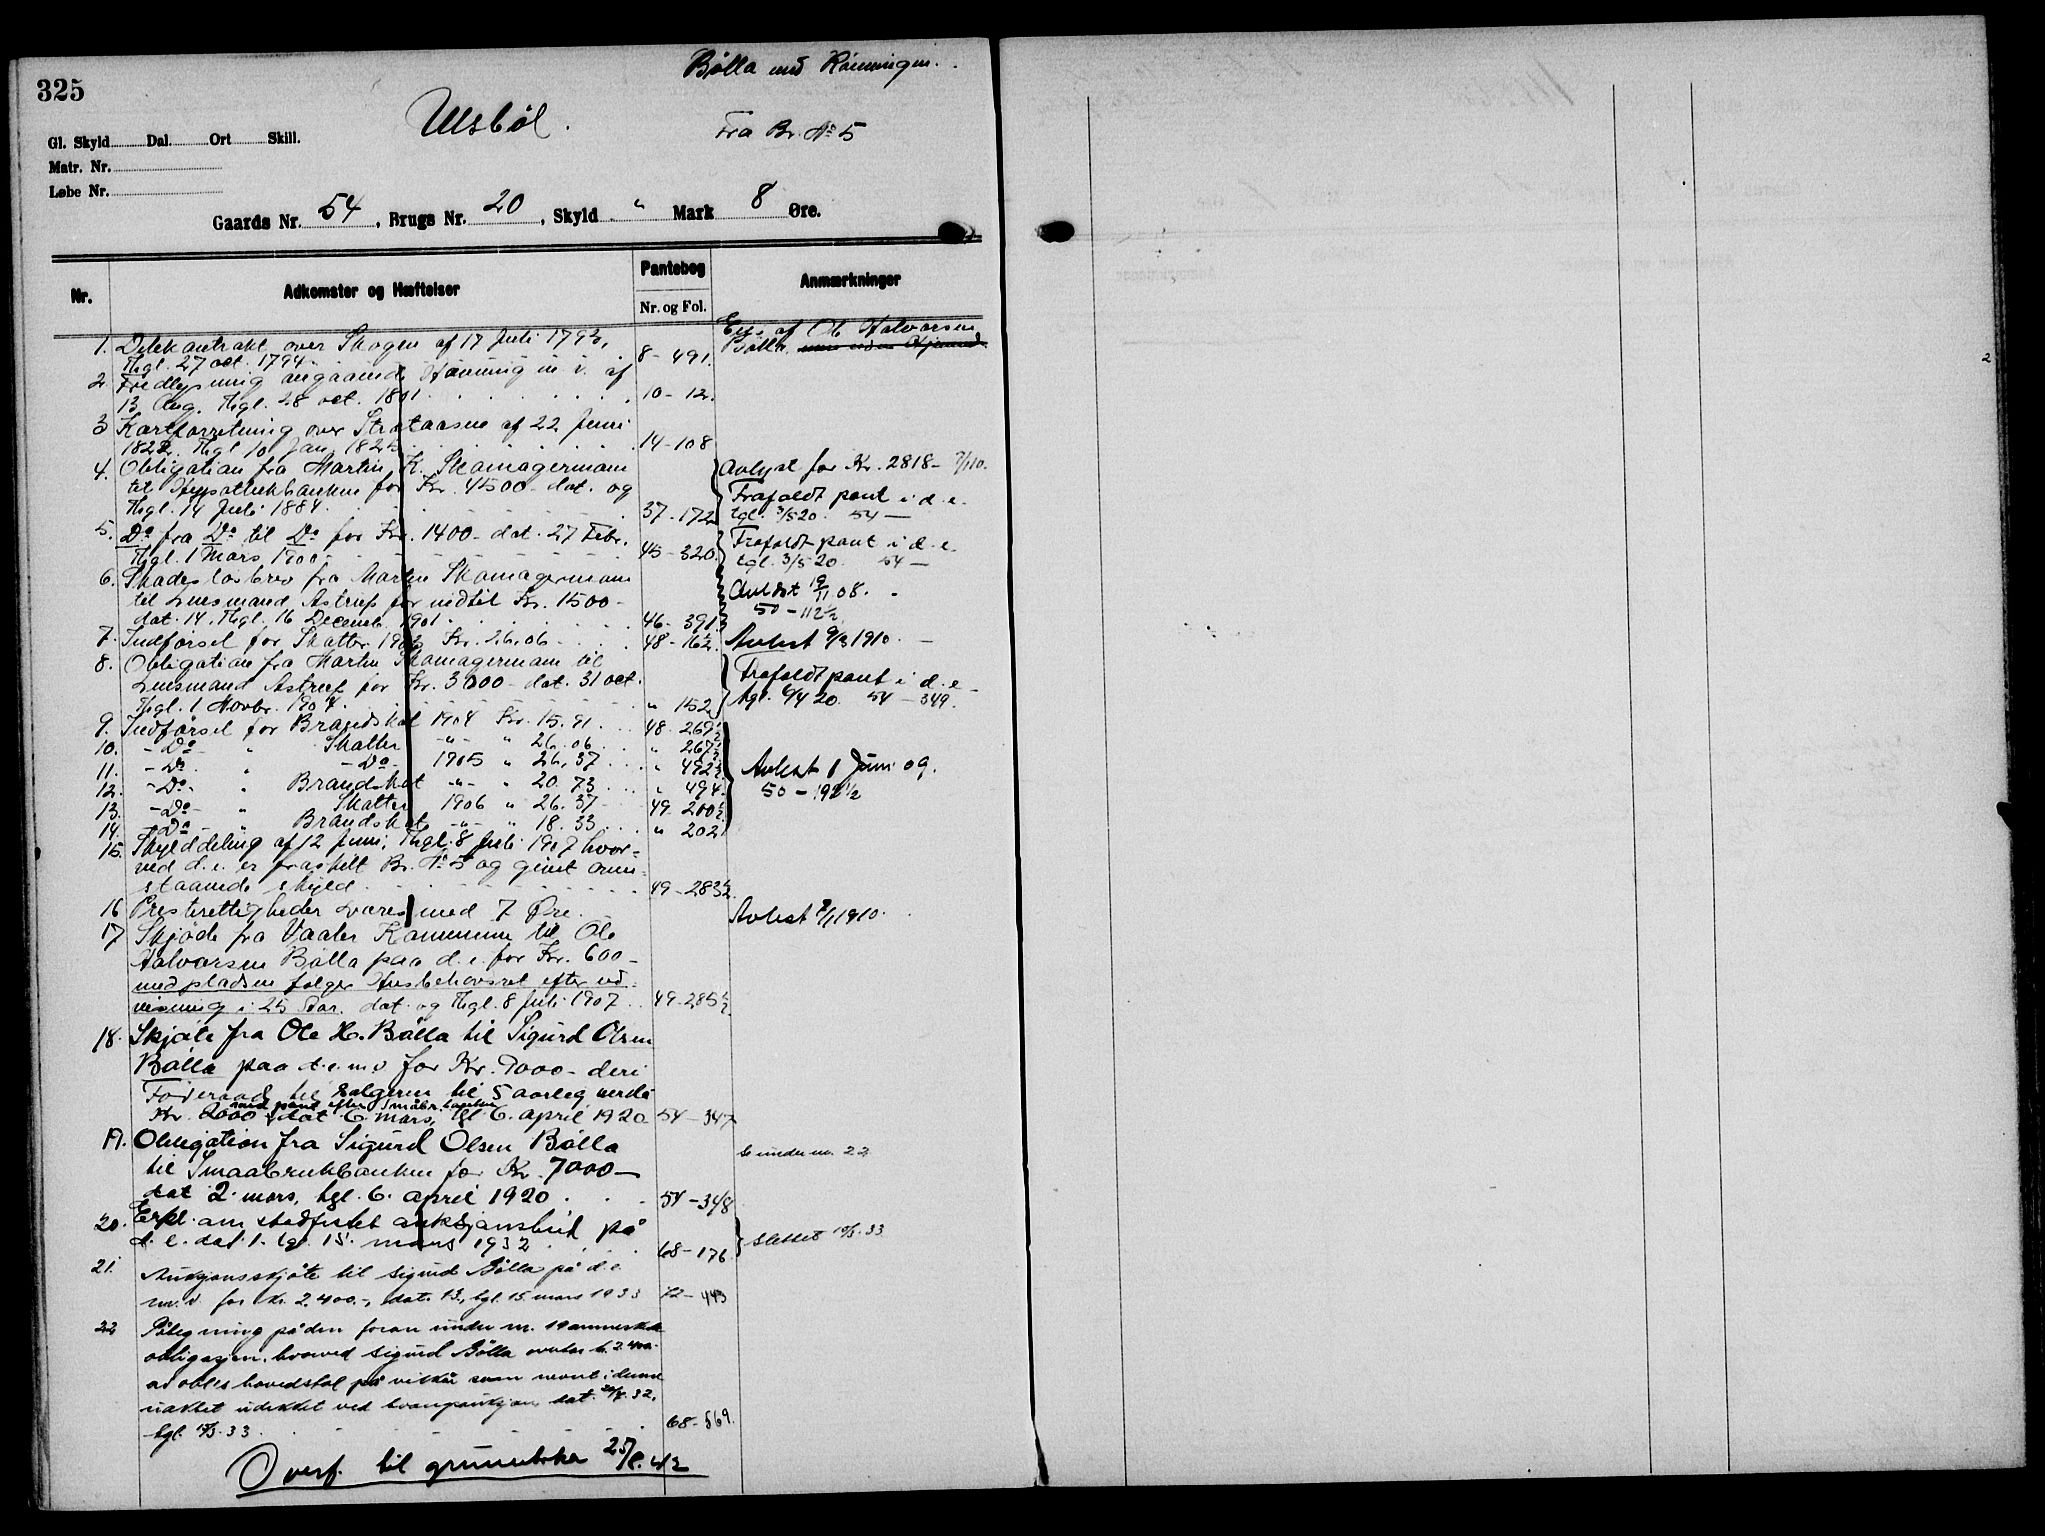 325
Bølla med Rønningen.
Ulsbøl.
Fra Br. No 5
Gl. Skyld Dal. Ort Skill.
Matr. Nr.
Løbe Nr.
Gaards Nr. 54, Brugs Nr. 20, Skyld " Mark 8 Øre.
Nr. Adkomster og Hæftelser Pantebog Nr. og Fol. Anmærkninger
Eies af Ole Halvorsen
Bølla
1. Delekontrakt over Skogen af 17 Juli 1793,
Thgl. 27 oct. 1794. 8 - 491.
2. Fredlysning angaaende Havning m. v. af
13 Aug. Thgl. 28 oct. 1801 10 - 12.
3 Kartforretning over Strataasen af 22 Juni
1822. Thgl 10 Jan. 1825 14 - 108
4. Obligation fra Martin K. Skamagermoen
til Hypothekbanken for Kr. 4500 - dat. og
Thgl. 14 Juli 1884. 37 - 172
Avlyst for Kr. 2818 -
Frafaldt pant i d. e.
tgl. 3/5 20. 54 —
5. Do fra Do til Do for Kr. 1400 - dat. 27 Febr.
Thgl. 1 Mars 1900 45 - 320.
Frafaldt pant i d. e.
tgl. 3/5 20. 54 —
6. Skadesløsbrev fra Martin Skamagermoen
til Lensmand Astrup for indtil Kr. 1500 -
dat. 14, Thgl. 16 Decemb. 1901 46 - 391.
Avlyst 19/11 08.
50 - 112 1/2
7. Indførsel for Skatter 1903 Kr. 26.06 48 - 16 1/2. Avlyst 9/3 1910.
8. Obligation fra Martin Skamagermoen til
Lensmand Astrup for Kr. 3000 - dat. 31 oct.
Thgl. 1 Novbr. 1904. " 152
Frafaldt pant i d. e.
tgl. 6/4 20. 54 - 349.
9. Indførsel for Brandskat 1904 Kr. 15.91 48 - 267 1/2
10. - Do - " Skatter - " - " 26.06 " 267 1/2
11. - Do " - Do - 1905 " 26,37 " 492 1/2
12. - Do - " Brandskat - " - " 20.73 " 494
13. - Do - " Skatter 1906 " 26.37 49 - 200 1/2
14. - Do " Brandskat - " - " 18.33 " 202
Avlyst 1 Juni 09.
50 - 192 1/2
15. Skylddeling af 12 Juni, Thgl. 8 Juli 1907 hvor-
ved d. e. er fraskilt Br. No 5 og givet oven-
staaende skyld 49 - 283 1/2.
16 Presterettigheder svares med 7 Øre. Avlyst 7/1 1910.
17 Skjøde fra Vaaler Kommune til Ole
Halvorsen Bølla paa d. e. for Kr. 600 -
med pladsen følger Husbehovsret efter ud-
visning i 25 Aar. dat. og Thgl. 8 Juli 1907 49 - 285 1/2
18. Skjøte fra Ole H. Bølla til Sigurd Olsen
Bølla paa d. e. m v for Kr. 9000 - deri
Føderaad til sælgeren til 5 aarlig verdi
Kr. 2000 med pant efter Småbr. banken dat 6. mars, tgl 6. april 1920 54 - 347
19. Obligation fra Sigurd Olsen Bølla
til Smaabrukbanken for Kr. 7000 —
dat 2. mars, tgl. 6. april 1920 54 - 348
Se under nr. 22
20. Erkl. om stedfestet auksjonsbud på
d. e. dat. 1. tgl. 15. mars 1932 68 - 176. slettet 15/3. 33
21. Auksjonsskjøte til Sigurd Bølla på d. e
m. v. for kr. 2.400.-, dat. 13, tgl. 15. mars 1933 72 - 443
22 Påtegning på den foran under nr. 19 anmerkede
obligasjon, hvorved Sigurd Bølla overtar kr. 2.400.-
av obl.s hovedstol på vilkår som nevnt i denne
uaktet udekket ved tvangsauksjon dat.
tgl. 15/3. 33 68 - 569.
Overf. til grunnboka 25/8. 42
2